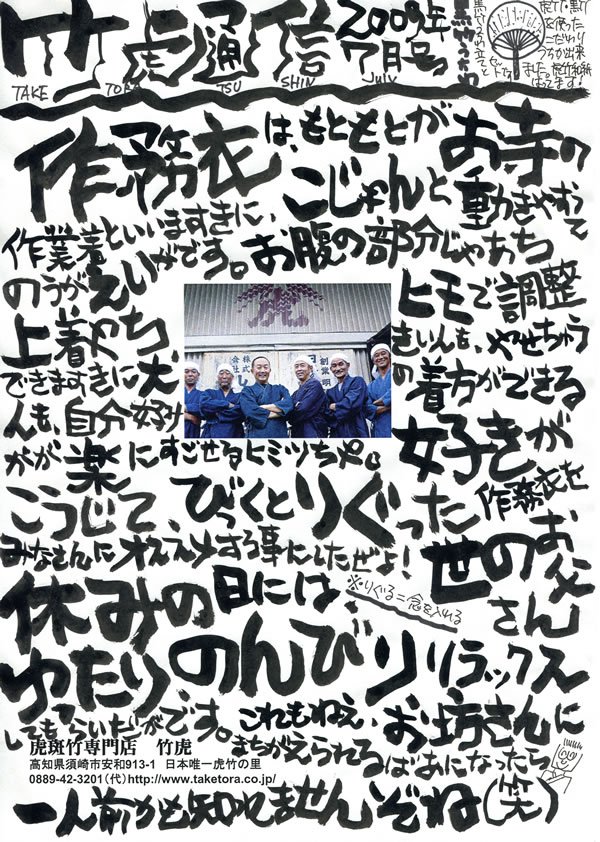 竹虎通信 2009年7月号
TAKE TORA TSU SHIN July
黒竹うちわ
作務衣は、もともとがお寺の
作業着といいますきに、こじゃんと動きやすうて
のうがえいがです。お腹の部分じゃあち
上着やち、ヒモで調整
できますきに、太きいんも、やせちゅう
んも、自分好みの着方ができる
がが楽にすごせるヒミツちや。好きが
こうじて、びっくとりぐった作務衣を
みなさんにオススメする事にしたぜよ!
※りぐる=念を入れる
世のお父さん
休みの日には、
ゆたりのんびりリラックス
してもらいたいがです。これもねえ、お坊さんに
まちがえられるばあになったら
一人前かも知れませんぞね(笑)
虎斑竹専門店 竹虎
高知県須崎市安和913-1 日本唯一虎竹の里
0889-42-3201(代)http://www.taketora.co.jp/